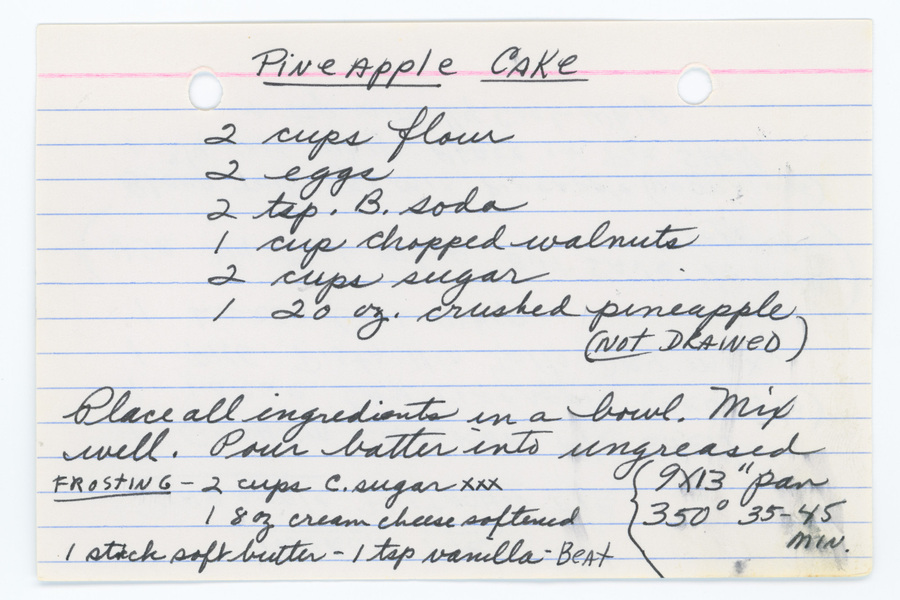 Pineapple Cake
2 cups flour
2 eggs
2 tsp. B. soda
1 cup chopped walnuts
2 cups sugar
1 20 oz. crushed pineapple
(NOT DRAINED)
Place all ingredients in a bowl. Mix
well. Pour batter into ungreased
9X13" pan
350° 35-45
min.
FROSTING - 2 cups C. sugar xxx
1 8 oz cream cheese softened
1 stick soft butter - 1 tsp vanilla - BEAT